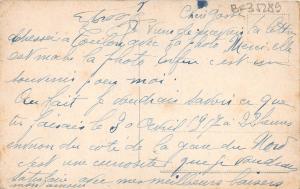 BF31289
Cher Gosse
Je viens de recevoir ta lettre
adressée à Toulon avec ta photo Merci elle
est mais ta photo enfin c'est un
souvenir pour moi.
Au fait je voudrais savoir ce que
tu faisais le 30 Avril 1917 à 22 heures
environ du coté de la gare du Nord
c'est une curiosité que je voudrais
satisfaire avec mes meilleurs baisers